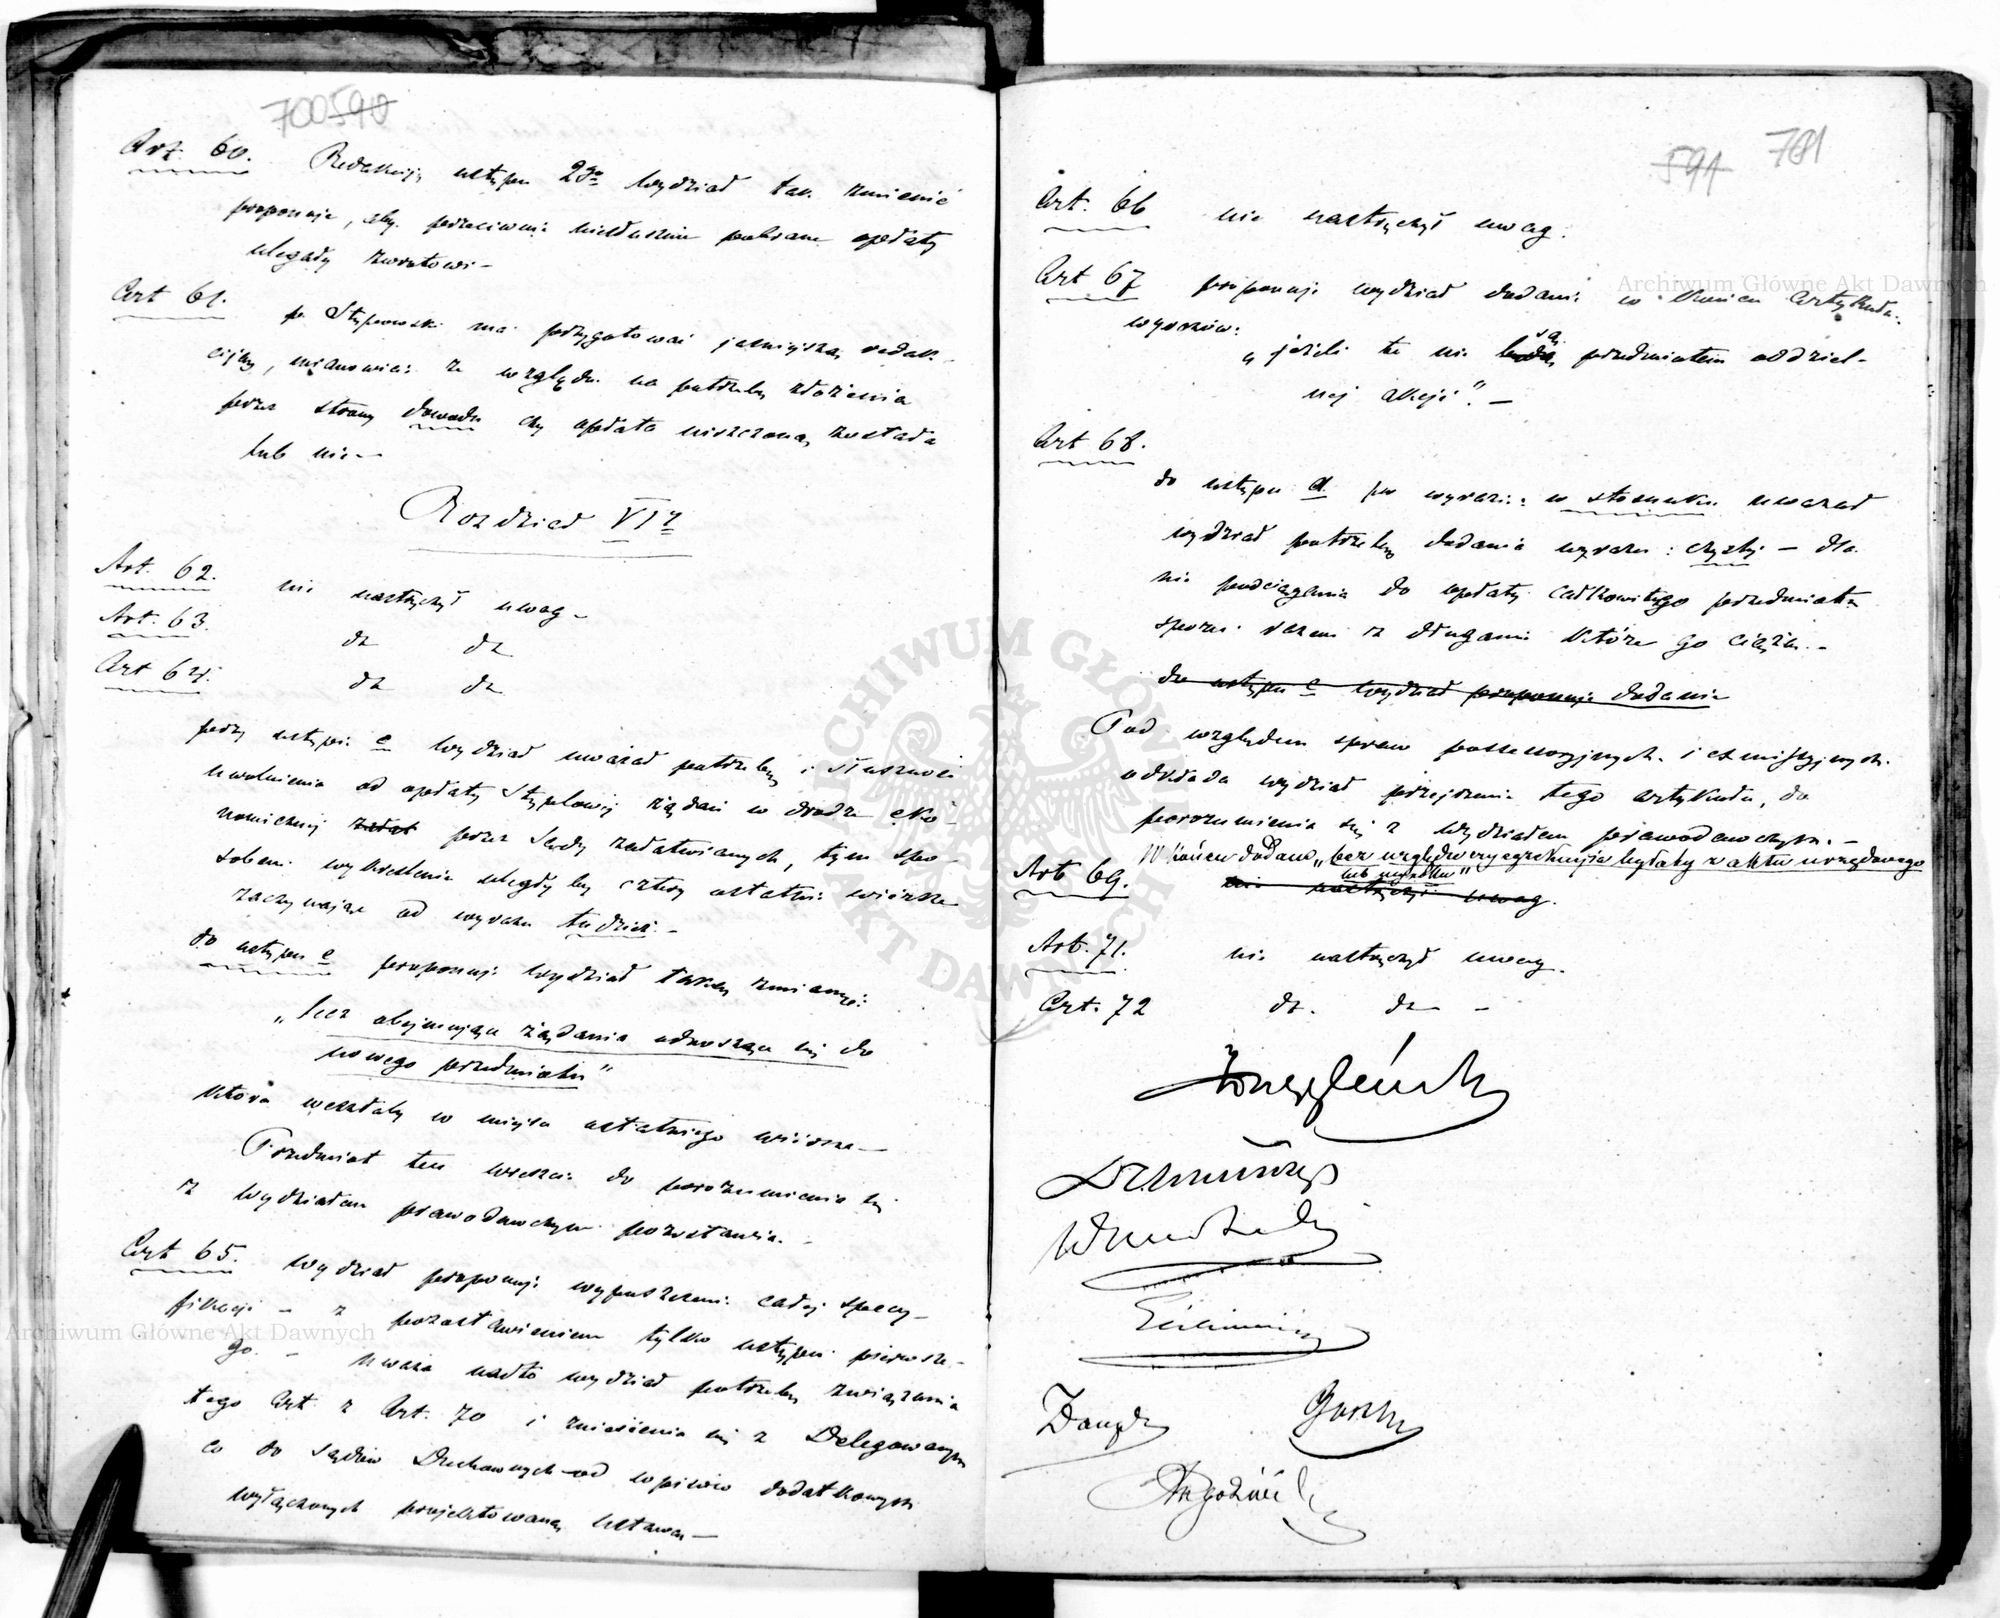 700 590
Art. 60. Redakcyją ustępu 2go Wydział tak zmienić
proponuje, aby przeciwnie niesłusznie pobrane opłaty
ulegały zwrotowi –
Art 61. p. Stypowski ma przygotować jaśniejszą redak-
ciją, mianowicie ze względu na potrzebę złożenia
przez strony dowodu czy opłata uiszczoną została
lub nie –
Rozdział VIty
Art. 62. nie nastręczył uwag –
Art. 63. dz dz
Art 64. dz dz
przy ustępie c Wydział uważał potrzebę i słuszność
uwolnienia od opłaty stęplowej żądań w drodze eko-
nomicznej żądań przez Sądy załatwianych, tym spo-
sobem wykreślenia uległyby cztery ostatnie wiersze
zaczynając od wyrazu tudzież –
do ustępu e proponuje Wydział taką zmianę:
„lecz obejmujące żądania odnoszące się do
nowego przedmiotu”
która weszłaby w miejsce ostatniego wiersza –
Przedmiot ten wreszcie do porozumienia się
z Wydziałem prawodawczym pozostawia. –
Art 65. Wydział proponuje wypuszczenie całej specy-
fikacji – z pozostawieniem tylko ustępu pierwsze-
go. – Uważa nadto wydział potrzebę związania
tego Art z Art. 70 i zniesienia się z Delegowanym
co do Sądów Duchownych od wpisów dodatkowych
wyłączonych projektowaną Ustawą –
591 701
Art. 66 nie nastręczył uwag.
Art 67 proponuje wydział dodanie w końcu Artykułu
wyrazów:
są
„jeżeli te nie będą przedmiotem oddziel-
nej akcji”. –
Art 68.
do ustępu d. po wyrazie: w stosunku uważał
wydział potrzebę dodania wyrazu: czystej – dla
nie pociągania do opłaty całkowitego przedmiotu
sporu razem z długami które go ciążą. –
do ustępu e Wydział proponuje dodanie
Pod względem spraw possessoryjnych i exmissyjnych
odkłada wydział przejrzenie tego artykułu, do
porozumienia się z Wydziałem prawodawczym. –
W końcu dodano „bez względu czy egzekucyja byłaby z aktu urzędowego
lub wyroku”
Art 69. nie nastręczył uwag.
Art. 71. nie nastręczył uwag.
Art. 72 dz. dz –